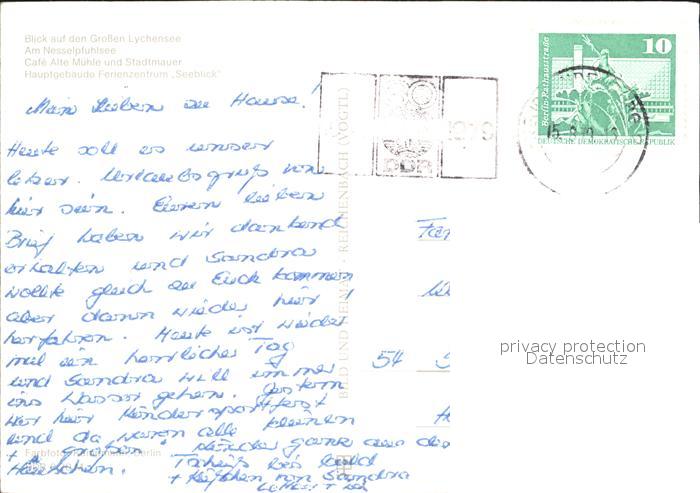 Blick auf den Großen Lychensee
Am Nesselpfuhlsee
Café Alte Mühle und Stadtmauer
Hauptgebäude Ferienzentrum „Seeblick"
10
Berlin-Rathausstraße
DEUTSCHE DEMOKRATISCHE REPUBLIK
1979
DDR
Mein lieben zu Hause!
Heute soll es unser
letzter Urlaubsgruß von
hier sein. Euren lieben
Brief haben wir dankend
erhalten und Sandra
wollte gleich zu Euch kommen
aber dann wieder hier
herfahren. Heute ist wieder
mal ein herrlicher Tag
und Sandra will immer
ins Wasser gehen. Gestern
war hier Kindersportfest
und da waren alle kleinen
+ Großen Kinder ganz aus dem
Häuschen. Tschüß bis bald
+ Küßchen von Sandra
Fam
54
BILD UND HEIMAT · REICHENBACH (VOGTL)
Berlin
privacy protection
Datenschutz